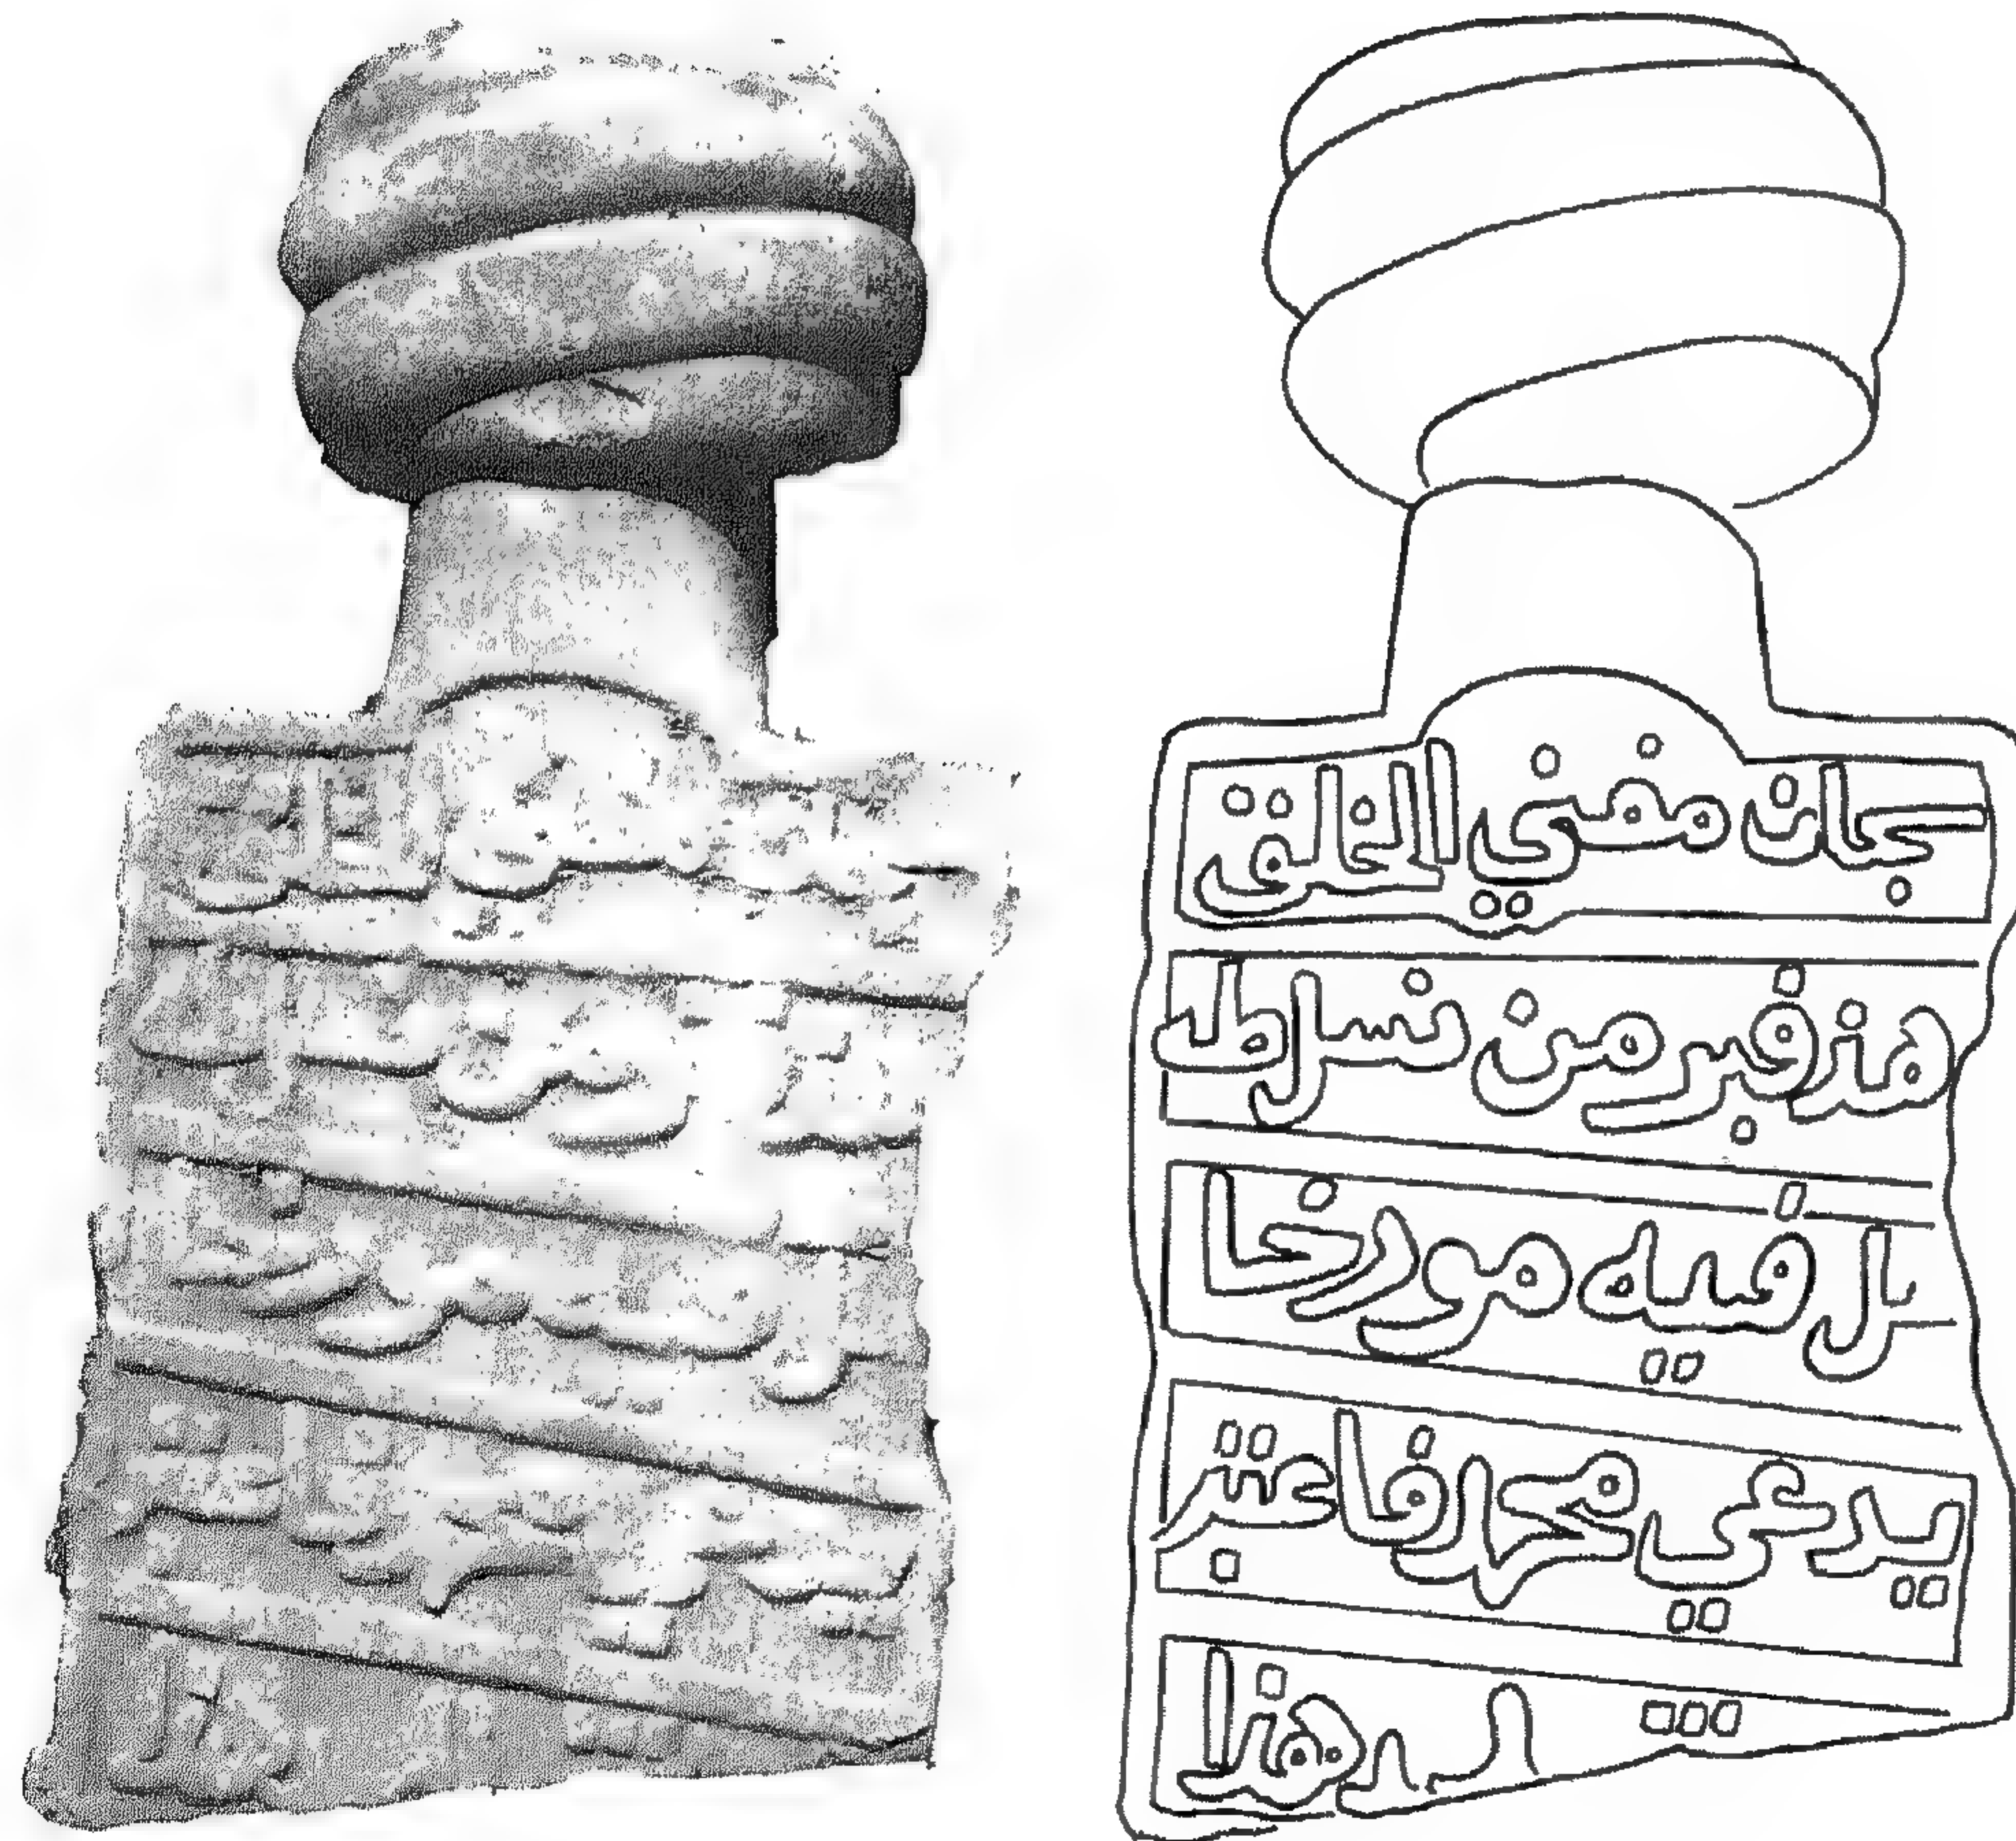 سبحان مفني الخلق
هذ قبر من نسل
فيه مورخا
يدعي محمد فاعتبر
هذا